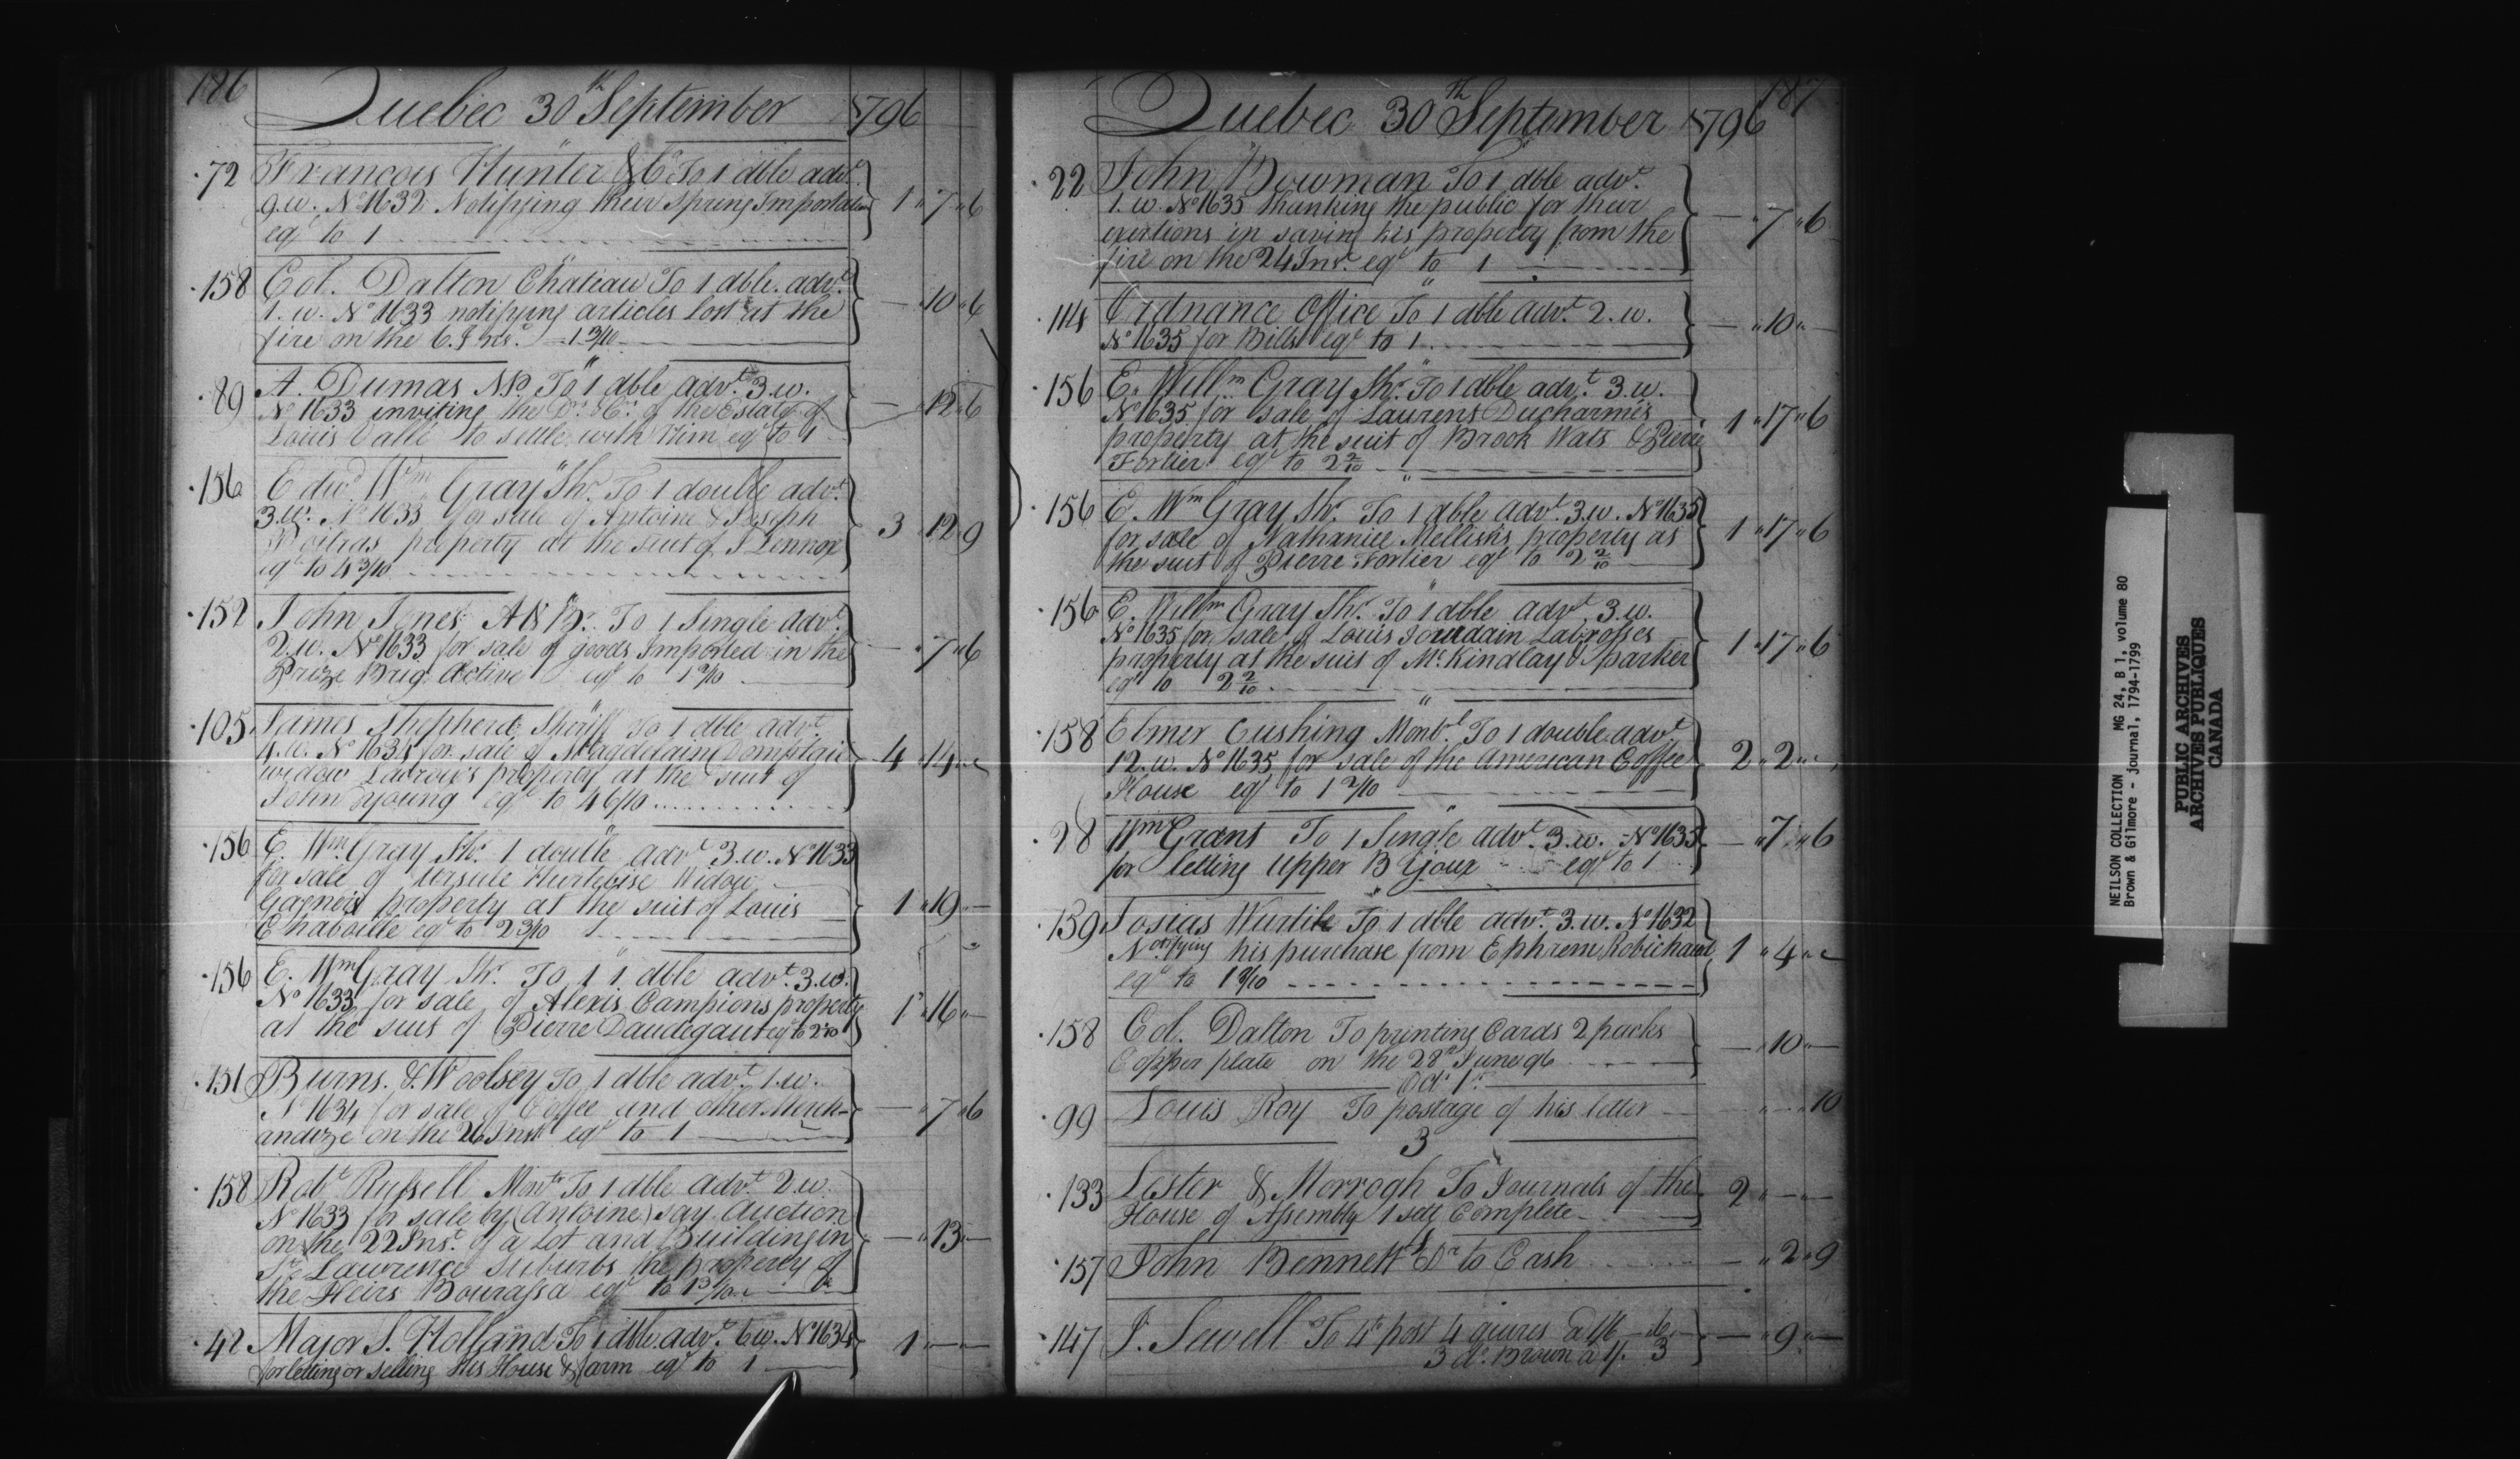 186
Quebec 30th September 1796
72 Francois Hunter & Co To 1 dble advt.
9.w. No 1632 Notifying their Spring Importation 1 " 7 " 6
eql to 1
158 Col. Dalton Chateau To 1 dble. advt.
1. w. No 1633 notifying articles lost at the — 10 " 6
fire on the 6. Inst. 1 3/10
89 A. Dumas N.P. To 1 dble advt. 3.w.
No 1633 inviting the Drs & Crs of the Estate of — 12 " 6
Louis Vallé to settle with Him eql to 1
156 Edwd Wm Gray Shr. To 1 double advt.
3.w. No 1633 for sale of Antoine & Joseph
Poitras property at the suit of J Lennox 3 " 12 " 9
eql to 4 3/10
152 John Jones A & Br. To 1 Single advt.
2.w. No 1633 for sale of goods Imported in the — " 7 " 6
Prize Brig Active eql to 1 2/10
105 James Shepherd Sheriff To 1 dble advt
4.w. No 1634 for sale of Magdelaine
widow property at the suit of 4 " 14 " —
John Young eql to 4 6/10
156 E. Wm Gray Shr. 1 double advt 3.w. No 1633
for sale of Ursule Hurtebise Widow
Gagneis property at the suit of Louis 1 " 19 " —
Chaboille eql to 2 3/10
156 E. Wm Gray Shr. To 1 1 dble advt. 3.w.
No 1633 for sale of Alexis Campions property
at the suit of Pierre Daudegaut eql to 1 " 16 " —
151 Burns & Woolsey To 1 dble advt. 1.w.
No 1634 for sale of Coffee and other Merch- — " 7 " 6
andize on the 26 Inst eql to 1
158 Robt Russell Montl To 1 dble advt. 2.w.
No 1633 for sale by (Antoine) Say Auction
on the 22 Inst. of a Lot and Building in — " 13 " —
St Lawrence Suburbs the property of
the Heirs Bourassa eql to 1 3/10
42 Major S. Holland To 1 dble. advt. 6w. No 1634 1 " — " —
for letting or selling His House & farm eql to 1
187
Quebec 30th September 1796
22 John Bowman To 1 dble advt.
1. w. No 1635 thanking the public for their
exertions in saving his property from the — " 7 " 6
fire on the 24 Inst. eql to 1
114 Ordnance Office To 1 dble advt. 2.w. — " 10 " —
No 1635 for Bills eql to 1
156 E. Willm Gray Shr. To 1 dble advt. 3.w.
No 1635 for sale of Laurens Ducharmes
property at the suit of Brook Wats & Pierre 1 " 17 " 6
Fortier eql to 2 2/10
156 E. Wm Gray Shr. To 1 dble advt. 3.w. No 1635
for sale of Nathaniel Mellishs property at 1 " 17 " 6
the suit of Pierre Fortier eql to 2 2/10
156 E. Willm Gray Shr. To 1 dble advt. 3.w.
No 1635 for sale of Louis Jourdain Labrosses
property at the suit of Mc.Kindlay & parker 1 " 17 " 6
eql to 2 2/10
158 Elmer Cushing Montl. To 1 double advt
12. w. No 1635 for sale of the American Coffee 2 " 2 " —
House eql to 1 2/10
28 Wm Grant To 1 Single advt. 3.w. No 1635 — " 7 " 6
for letting Upper B eql to 1
159 Josias Wurtile To 1 dble advt. 3.w. No 1632
Notifying his purchase from Ephrem Robichaud 1 " 4 " —
eql to
158 Col. Dalton To printing Cards 2 packs
Copper plate on the 28th June 96 — " 10 " —
Octr 1st.
99 Louis Roy To postage of his letter " — " 10
3
133 Lester & Morrogh To Journals of the 2 " — " —
House of Assembly 1 sett Complete
157 John Bennett Dr to Cash — " 2 " 9
147 J. Sewell To 4to post 4 quires a 1/6 6 — " 9 " —
3 do. Brown a 1/. 3
NEILSON COLLECTION MG 24, B 1, volume 80
Brown & Gilmore - journal, 1794-1799
PUBLIC ARCHIVES
ARCHIVES PUBLIQUES
CANADA